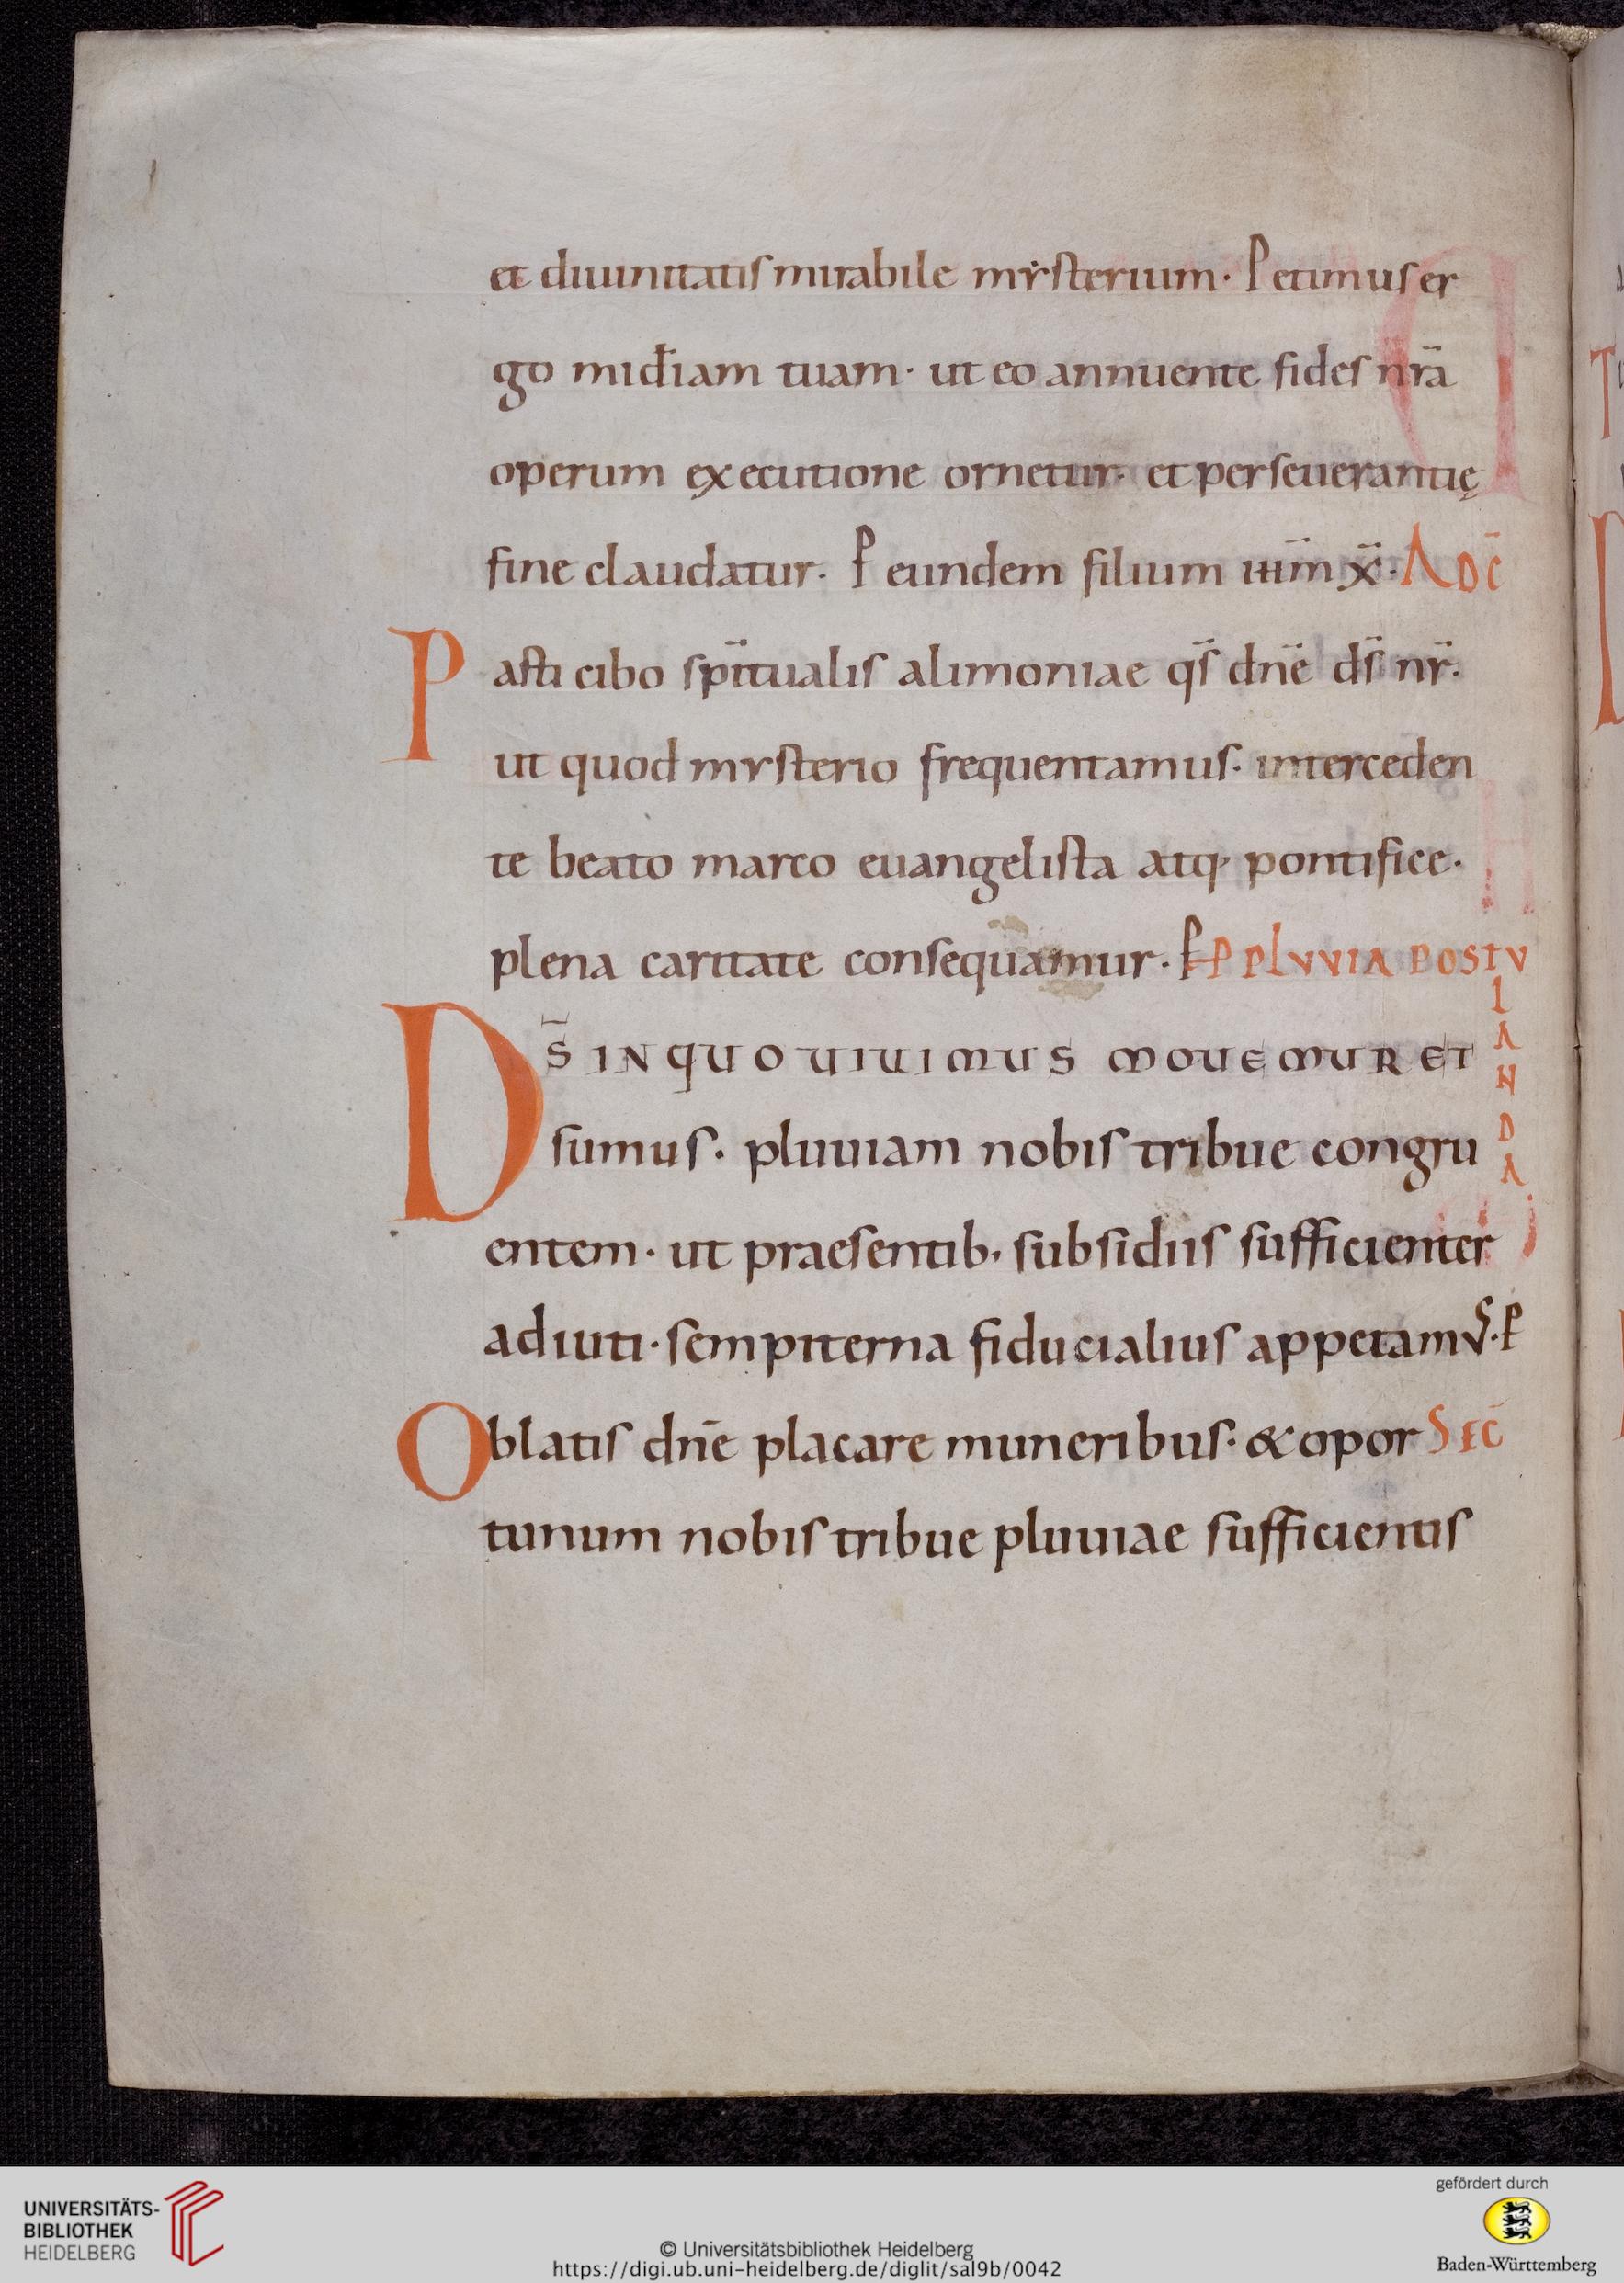 et diuinitatis mirabile mẏsterium · Petimus er
go mi̅diam tuam · ut eo annuente fides nr̅a
operum executione ornetur · et perseuerantię
fine claudatur · P eundem filium iiim̅ x̅ · AD C̅
Pasti cibo sp̅itualis alimoniae qs̅ dn̅e ds̅ nr̅ ·
ut quod mysterio frequentamus · interceden
te beato marco euangelista atq· pontifice ·
plena caritate consequamur · P P PLVVIA POSTV
LANDA
DS̅ IN QUO UIUIMUS MOUEMUR ET
sumus · pluuiam nobis tribue congru
entem · ut praesentib· subsidiis sufficienter
adiuti · sempiterna fiducialius appetamus · P
Oblatis dn̅e placare muneribus · & opor SEC̅
tunum nobis tribue pluuiae sufficientis
UNIVERSITÄTS-
BIBLIOTHEK
HEIDELBERG
© Universitätsbibliothek Heidelberg
https://digi.ub.uni-heidelberg.de/diglit/sal9b/0042
gefördert durch
Baden-Württemberg